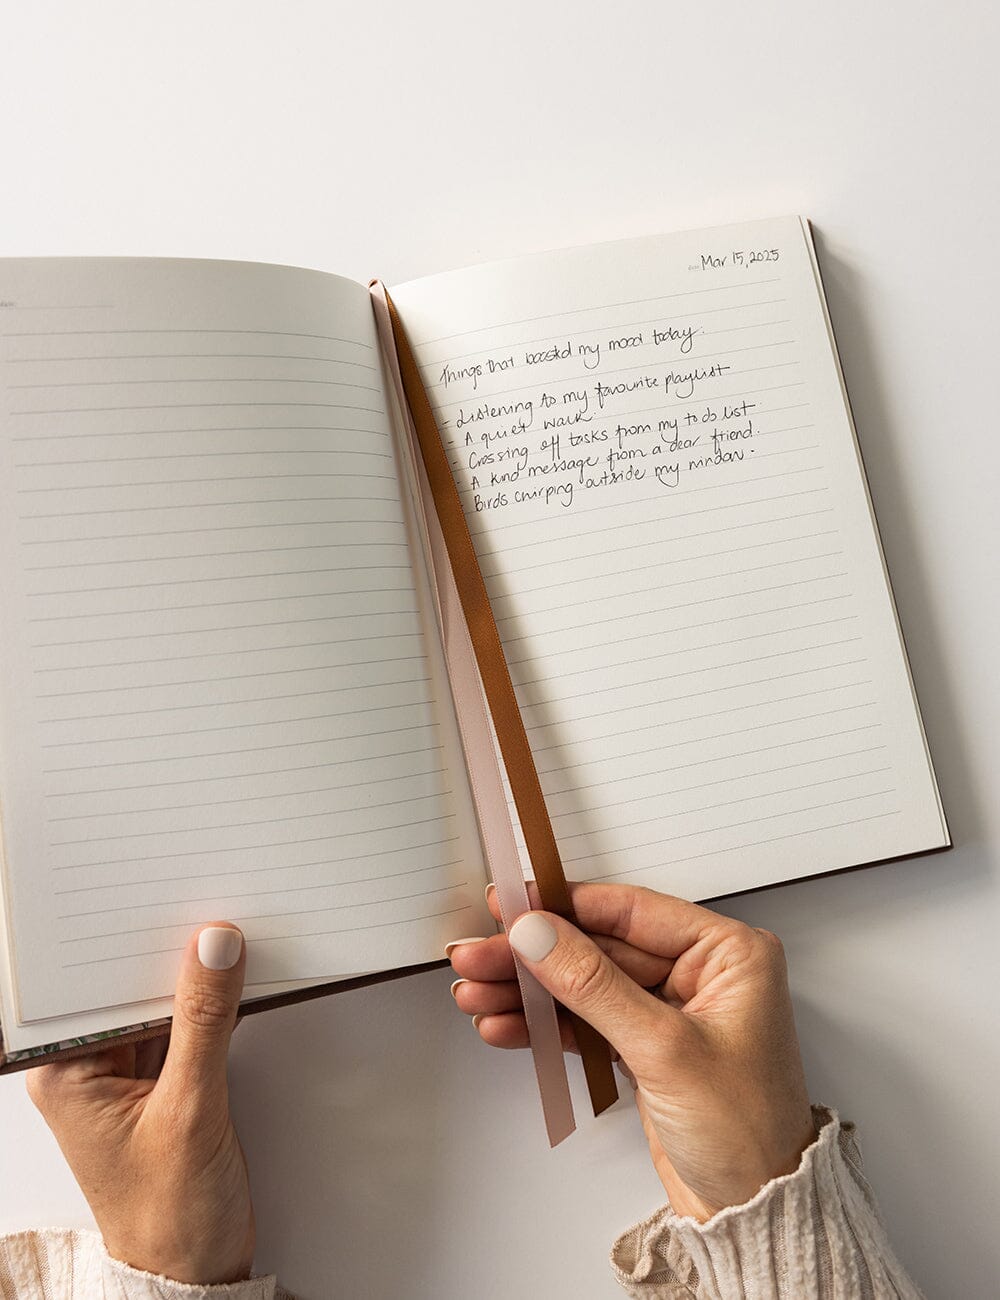 date: Mar 15, 2025
Things that boosted my mood today:
- Listening to my favourite playlist
- A quiet walk.
- Crossing off tasks from my to do list
- A kind message from a dear friend.
- Birds chirping outside my window.